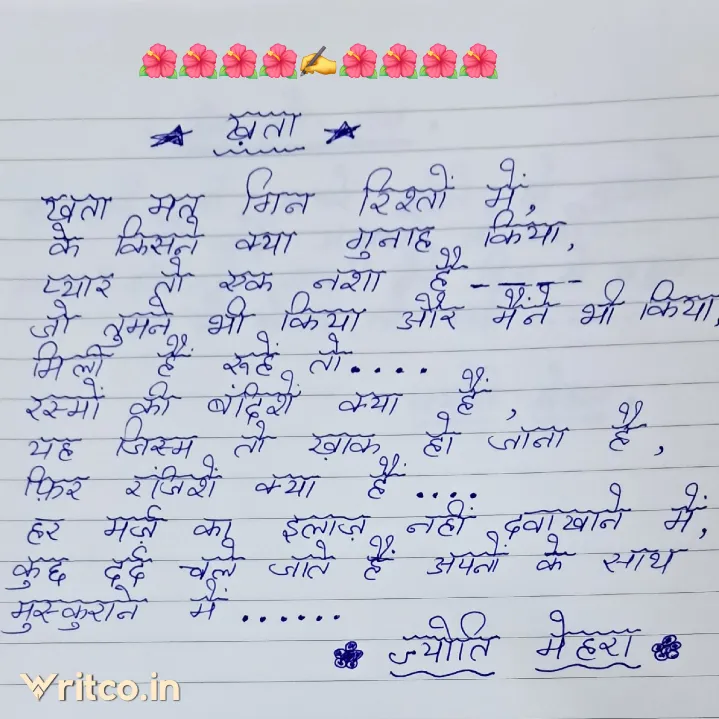 ख़ता
ख़ता मत गिन रिश्तों में,
के किसने क्या गुनाह किया,
प्यार तो एक नशा है -----
जो तुमने भी किया और मैंने भी किया,
मिली हैं रूहें तो....
रस्मों की बंदिशें क्या हैं,
यह जिस्म तो ख़ाक हो जाना है,
फ़िर रंजिशें क्या हैं....
हर मर्ज का इलाज़ नहीं दवाखाने में,
कुछ दर्द चले जाते हैं अपनों के साथ
मुस्कुराने में ......
ज्योति मेहरा
Writco.in